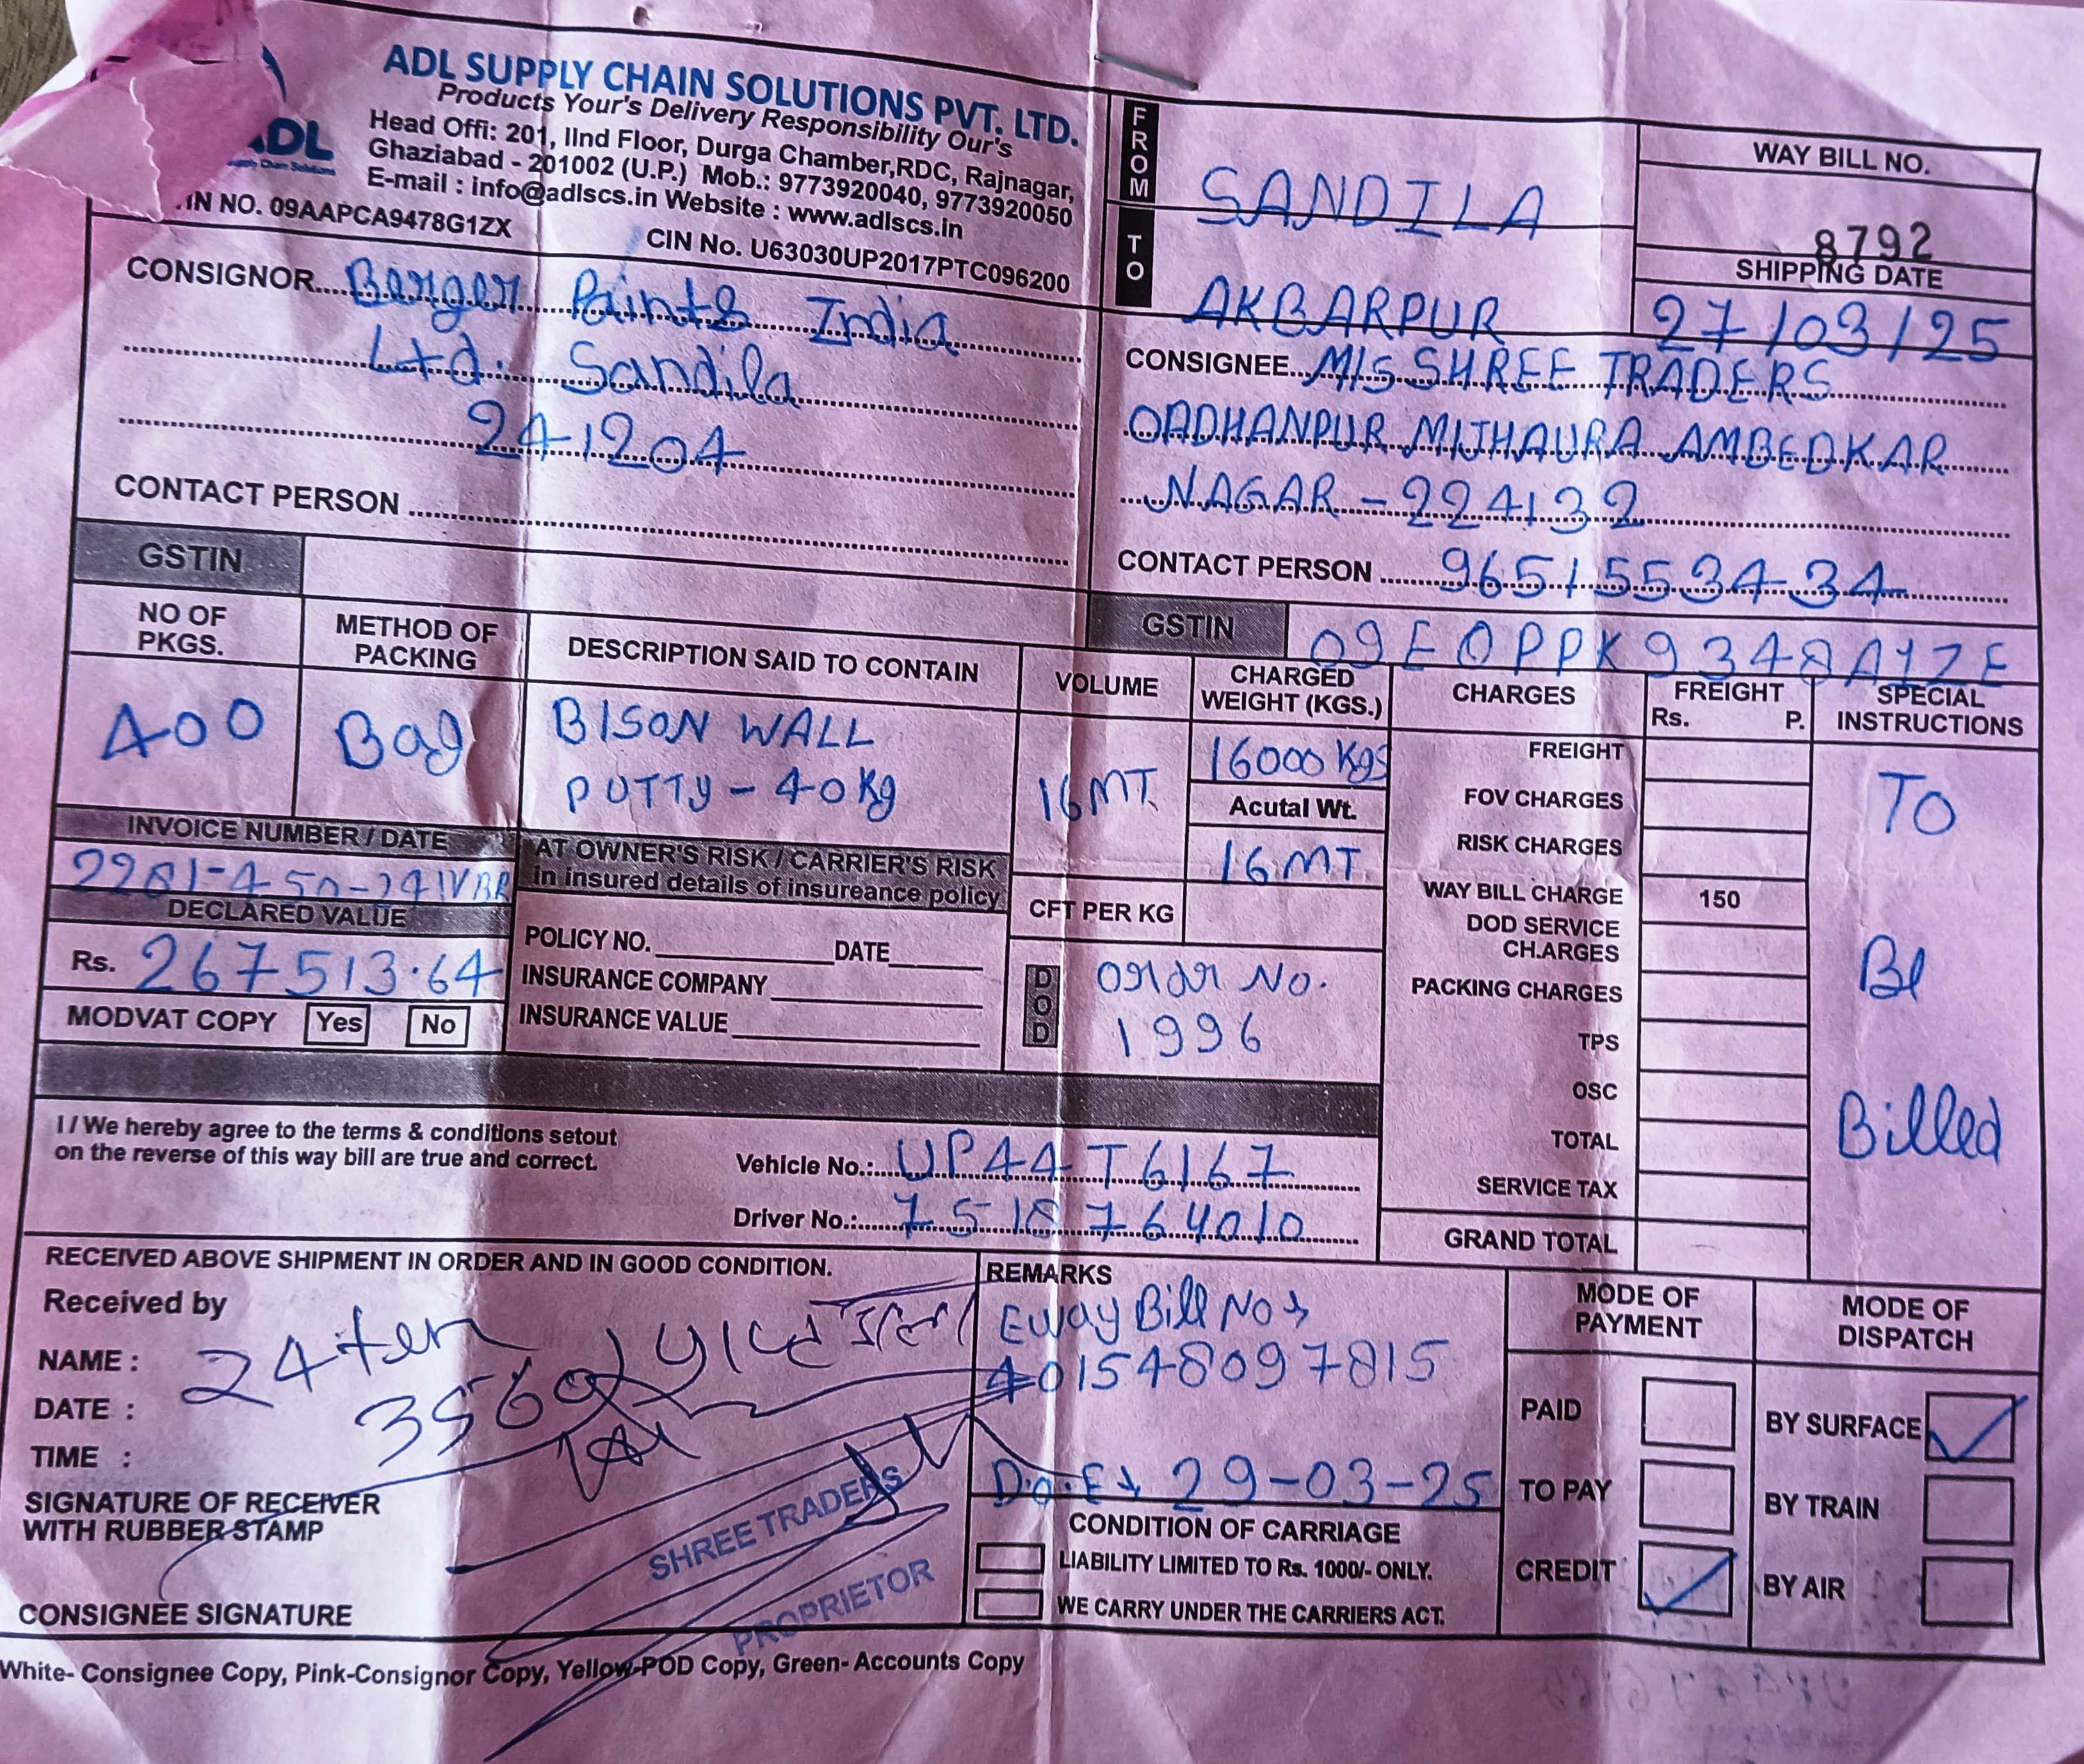 ADL SUPPLY CHAIN SOLUTIONS PVT. LTD.
Products Your's Delivery Responsibility Our's
Head Offi: 201, IInd Floor, Durga Chamber,RDC, Rajnagar,
Ghaziabad - 201002 (U.P.) Mob.: 9773920040, 9773920050
E-mail : info@adlscs.in Website : www.adlscs.in
ADL
Supply Chain Solutions
IN NO. 09AAPCA9478G1ZX
CIN No. U63030UP2017PTC096200
FROM
SANDILA
TO
AKBARPUR
WAY BILL NO.
8792
SHIPPING DATE
27/03/25
CONSIGNOR Berger Paints India
Ltd. Sandila
241204
CONTACT PERSON
GSTIN
CONSIGNEE M/S SHREE TRADERS
OADHANPUR MIJHAURA AMBEDKAR
NAGAR - 224132
CONTACT PERSON 9651553434
GSTIN
NO OF PKGS.
METHOD OF PACKING
DESCRIPTION SAID TO CONTAIN
VOLUME
CHARGED WEIGHT (KGS.)
CHARGES
FREIGHT
Rs. P.
SPECIAL INSTRUCTIONS
400
Bag
BISON WALL
PUTTY - 40 Kg
16 MT.
16000 Kgs
Acutal Wt.
16 MT.
CFT PER KG
FREIGHT
FOV CHARGES
RISK CHARGES
WAY BILL CHARGE 150
DOD SERVICE CH.ARGES
PACKING CHARGES
TPS
OSC
TOTAL
SERVICE TAX
GRAND TOTAL
TO
Be
Billed
INVOICE NUMBER / DATE
DECLARED VALUE
Rs. 267513.64
MODVAT COPY Yes No
AT OWNER'S RISK / CARRIER'S RISK
in insured details of insureance policy
POLICY NO. DATE
INSURANCE COMPANY
INSURANCE VALUE
DOD
Order No.
1996
I / We hereby agree to the terms & conditions setout
on the reverse of this way bill are true and correct.
Vehicle No.: UP44T6167
Driver No.: 7518764010
RECEIVED ABOVE SHIPMENT IN ORDER AND IN GOOD CONDITION.
Received by
NAME :
DATE :
TIME :
24 ten
3560
SIGNATURE OF RECEIVER
WITH RUBBER STAMP
SHREE TRADERS
PROPRIETOR
CONSIGNEE SIGNATURE
REMARKS
Eway Bill No
401548097815
29-03-25
CONDITION OF CARRIAGE
LIABILITY LIMITED TO Rs. 1000/- ONLY.
WE CARRY UNDER THE CARRIERS ACT.
MODE OF PAYMENT
PAID
TO PAY
CREDIT
MODE OF DISPATCH
BY SURFACE
BY TRAIN
BY AIR
White- Consignee Copy, Pink-Consignor Copy, Yellow-POD Copy, Green- Accounts Copy